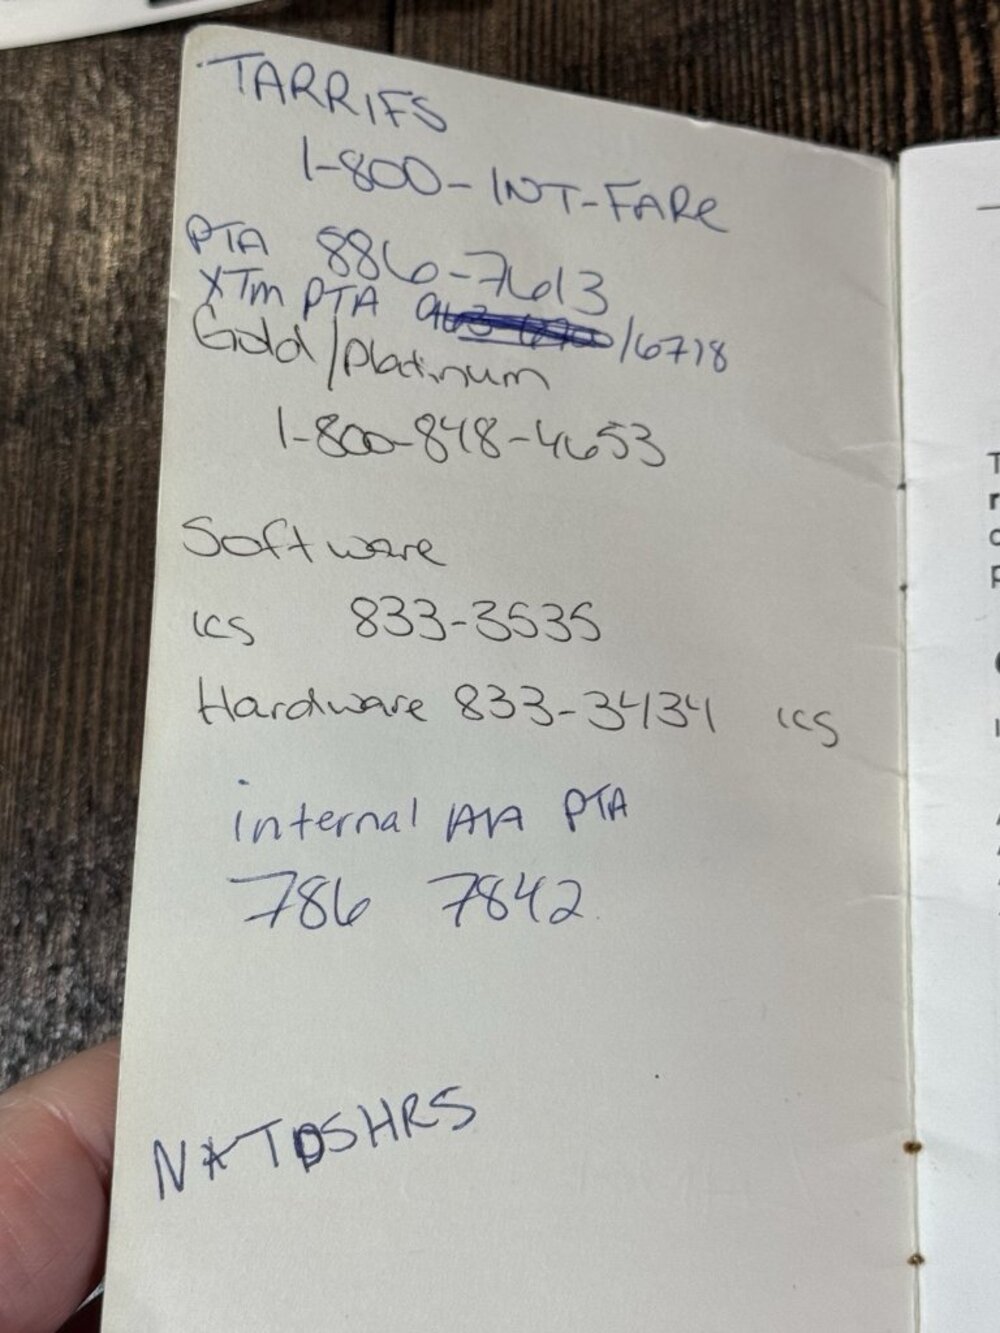 TARRIFS
1-800-INT-FARe
PTA 886-7613
XTM PTA /6718
Gold/Platinum
1-800-848-4653
Software
ICS 833-3535
Hardware 833-3434 ICS
internal AA PTA
786 7842
N*TDSHRS